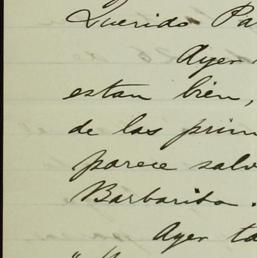 Querido Pa
Ayer
estan bien,
de las prim
parece salv
Barbarita.
Ayer ta